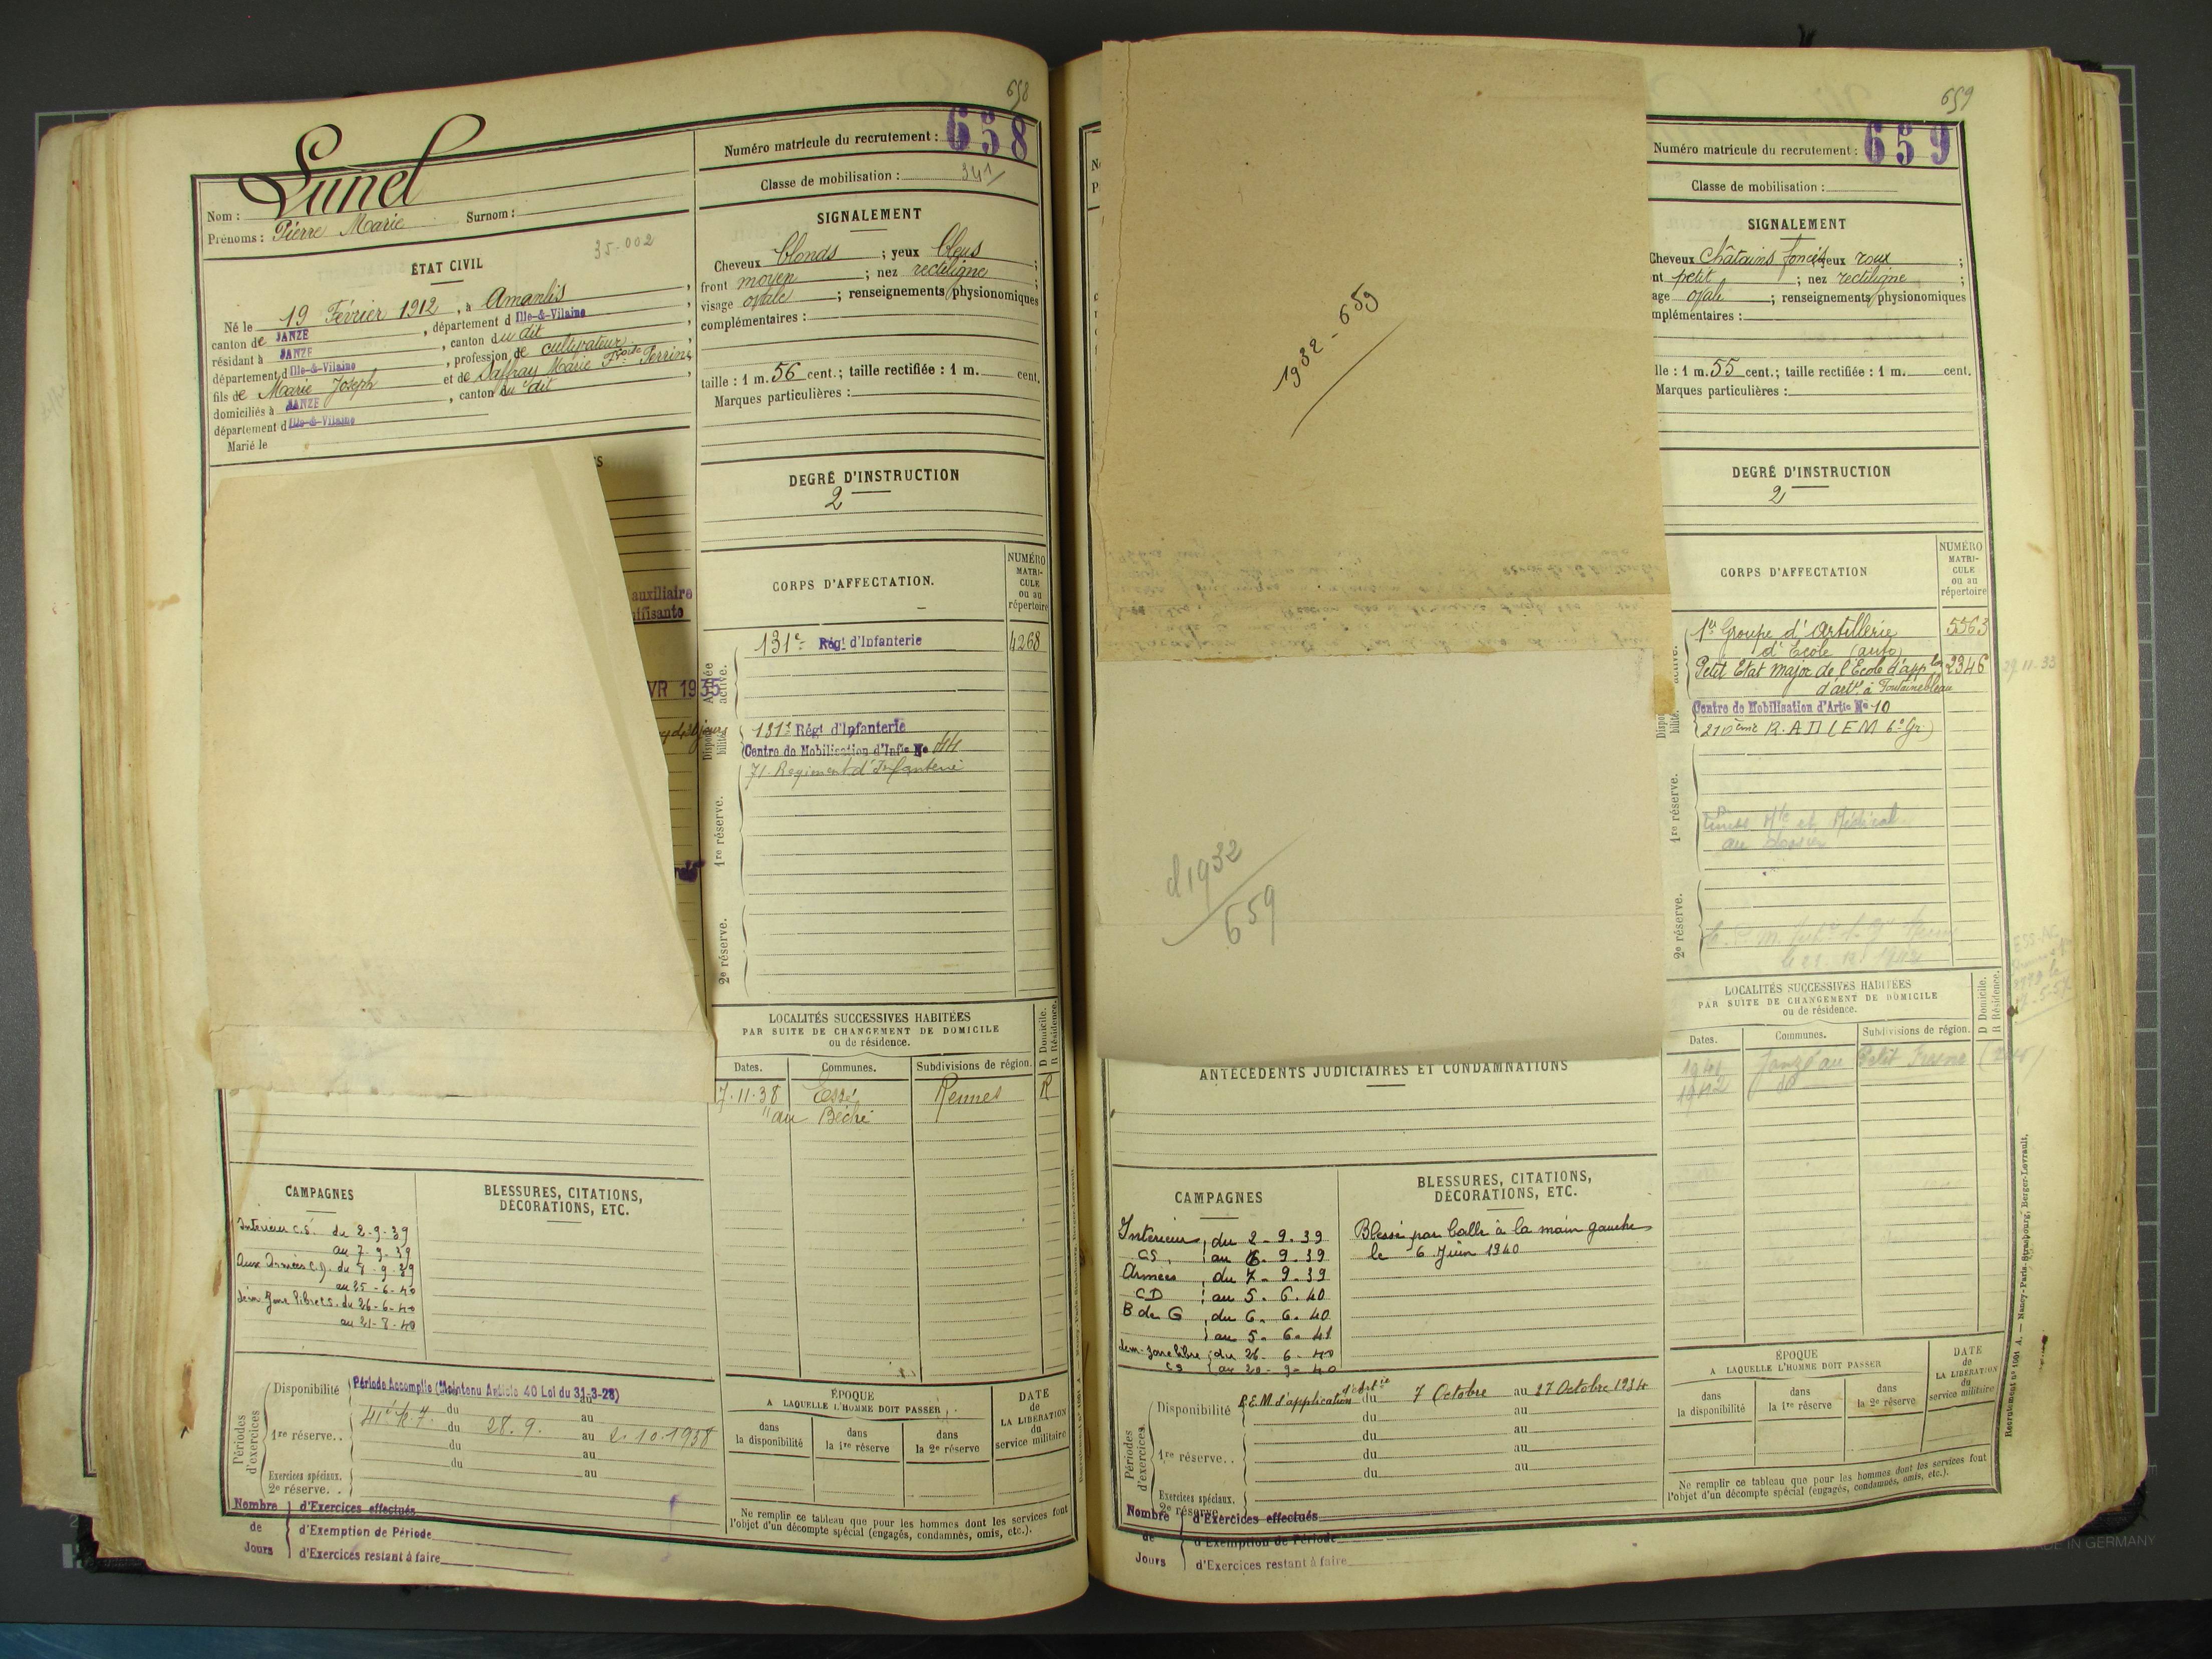 658
Numéro matricule du recrutement : 658
Classe de mobilisation : 341
Nom : Lunel
Prénoms : Pierre Marie Surnom :
35-002
ÉTAT CIVIL
Né le 19 Février 1912, à Amanlis,
canton de JANZÉ, département d Ille-&-Vilaine,
résidant à JANZÉ, canton du dit,
département d Ille-&-Vilaine, profession de cultivateur,
fils de Marie Joseph et de Daffray Marie Fçoise Perrine,
domiciliés à JANZÉ, canton du dit,
département d Ille-&-Vilaine
Marié le
SIGNALEMENT
Cheveux blonds ; yeux bleus ;
front moyen ; nez rectiligne ;
visage ovale ; renseignements physionomiques
complémentaires :
taille : 1 m. 56 cent. ; taille rectifiée : 1 m. cent.
Marques particulières :
DEGRÉ D'INSTRUCTION
2
auxiliaire
VR 1935
CORPS D'AFFECTATION.
NUMÉRO MATRI-CULE ou au répertoire
Armée active.
131e Régt d'Infanterie 4268
Disponibilité.
131e Régt d'Infanterie
Centre de Mobilisation d'Infie No 44
71 Regiment d'Infanterie
1re réserve.
2e réserve.
LOCALITÉS SUCCESSIVES HABITÉES
PAR SUITE DE CHANGEMENT DE DOMICILE
ou de résidence.
D Domicile.
R Résidence.
Dates. Communes. Subdivisions de région.
7.11.38 Essé Rennes R
"au Béché
CAMPAGNES
Intérieur C.S. du 2-9-39
au 7-9-39
Aux Armées C.D. du 7-9-39
au 25-6-40
dém Zone libre C.S. du 26-6-40
au 21-7-40
BLESSURES, CITATIONS,
DÉCORATIONS, ETC.
Périodes d'exercices
Disponibilité Période Accomplie (Maintenu Article 40 Loi du 31-3-28) au
du au
1re réserve.. du 28.9. au 2.10.1938
du au
du au
Exercices spéciaux.
2e réserve..
Nombre de Jours
d'Exercices effectués
d'Exemption de Période
d'Exercices restant à faire
ÉPOQUE
A LAQUELLE L'HOMME DOIT PASSER
dans la disponibilité
dans la 1re réserve
dans la 2e réserve
DATE de LA LIBÉRATION du service militaire
Ne remplir ce tableau que pour les hommes dont les services font
l'objet d'un décompte spécial (engagés, condamnés, omis, etc.).
659
Numéro matricule du recrutement : 659
Classe de mobilisation :
1932-659
d 1932
659
SIGNALEMENT
Cheveux châtains foncés yeux roux ;
nt petit ; nez rectiligne ;
age ovale ; renseignements physionomiques
mplémentaires :
lle : 1 m. 55 cent. ; taille rectifiée : 1 m. cent.
Marques particulières :
DEGRÉ D'INSTRUCTION
2
CORPS D'AFFECTATION
NUMÉRO MATRI-CULE ou au répertoire
active.
1er Groupe d'Artillerie 5563
d'Ecole (auto)
Petit Etat Major de l'Ecole d'appton 2346 29.11.33
d'artie à Fontainebleau
Centre de Mobilisation d'Artie No 10
210ème R.A.D (EM 6e Gr)
1re réserve.
2e réserve.
LOCALITÉS SUCCESSIVES HABITÉES
PAR SUITE DE CHANGEMENT DE DOMICILE
ou de résidence.
D Domicile.
R Résidence.
Dates. Communes. Subdivisions de région.
1941 Janzé au Petit Fresne
1942
ANTÉCÉDENTS JUDICIAIRES ET CONDAMNATIONS
CAMPAGNES
Intérieur, du 2-9-39
CS, au 6.9.39
Armées, du 7-9-39
CD au 5.6.40
B de G, du 6.6.40
au 5.6.41
dém. zone libre du 26-6-40
CS au 20-9-40
BLESSURES, CITATIONS,
DÉCORATIONS, ETC.
Blessé par balle à la main gauche
le 6 Juin 1940
Périodes d'exercices
Disponibilité P.E.M. d'application d'Artie du 7 Octobre au 27 Octobre 1934
du au
du au
1re réserve.. du au
du au
Exercices spéciaux.
2e réserve.
Nombre de Jours
d'Exercices effectués
d'Exemption de Période
d'Exercices restant à faire
ÉPOQUE
A LAQUELLE L'HOMME DOIT PASSER
dans la disponibilité
dans la 1re réserve
dans la 2e réserve
DATE de LA LIBÉRATION du service militaire
Ne remplir ce tableau que pour les hommes dont les services font
l'objet d'un décompte spécial (engagés, condamnés, omis, etc.).
Nancy-Paris-Strasbourg, Berger-Levrault.
MADE IN GERMANY